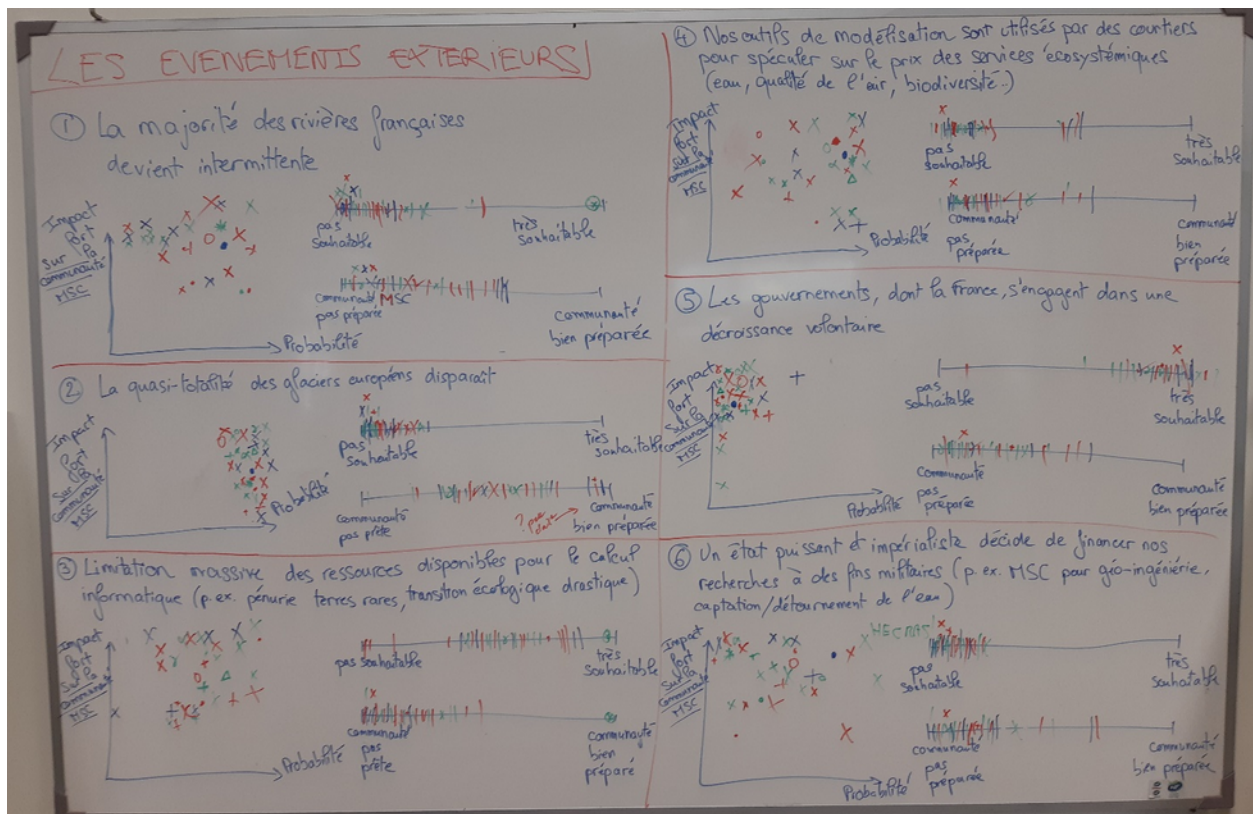 LES EVENEMENTS EXTERIEURS
① La majorité des rivières françaises
devient intermittente
Impact
fort
sur la
communauté
MSC
Probabilité
pas
souhaitable
très
souhaitable
communauté MSC
pas préparée
communauté
bien préparée
② La quasi-totalité des glaciers européens disparaît
Impact
fort
sur la
communauté
MSC
Probabilité
pas
souhaitable
très
souhaitable
communauté
pas prête
communauté
bien préparée
③ Limitation massive des ressources disponibles pour le calcul
informatique (p. ex. pénurie terres rares, transition écologique drastique)
Impact
fort
sur la
communauté
MSC
Probabilité
pas souhaitable
très
souhaitable
communauté
pas
prête
communauté
bien
préparé
④ Nos outils de modélisation sont utilisés par des courtiers
pour spéculer sur le prix des services écosystémiques
(eau, qualité de l'air, biodiversité..)
Impact
fort
sur la
communauté
MSC
Probabilité
pas
souhaitable
très
souhaitable
communauté
pas
préparée
communauté
bien
préparée
⑤ Les gouvernements, dont la France, s'engagent dans une
décroissance volontaire
Impact
fort
sur la
communauté
MSC
Probabilité
pas
souhaitable
très
souhaitable
communauté
pas
préparée
communauté
bien préparée
⑥ Un état puissant et impérialiste décide de financer nos
recherches à des fins militaires (p. ex. MSC pour géo-ingéniérie,
captation/détournement de l'eau)
Impact
fort
sur la
communauté
MSC
Probabilité
pas
souhaitable
très
souhaitable
communauté
pas
préparée
communauté
bien préparée